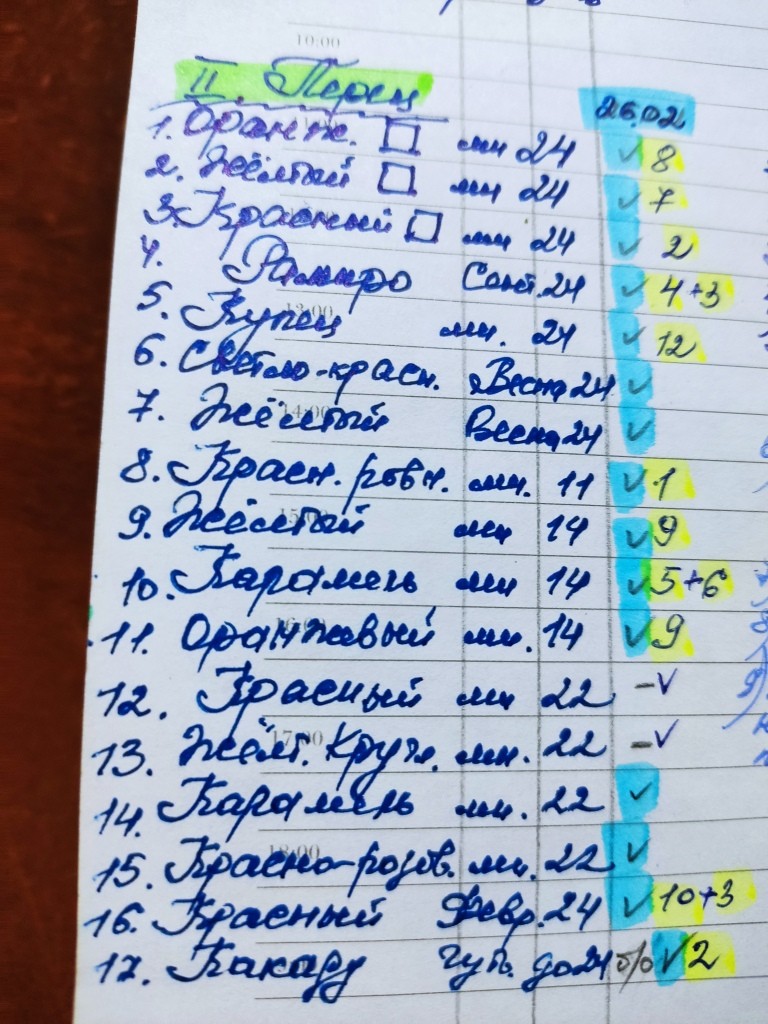 10:00
II. Перец 26.02
1. Оранж. □ мн 24 ✓ 8
2. Жёлтый □ мн 24 ✓ 7
3. Красный □ мн 24 ✓ 2
4. Рамиро Сент. 24 ✓ 4+3
5. Купец мн. 24 ✓ 12
6. Светло-красн. Весна 24 ✓
7. Жёлтый Весна 24 ✓
8. Красн. ровн. мн. 11 ✓ 1
9. Жёлтый мн 14 ✓ 9
10. Карамель мн 14 ✓ 5+6
11. Оранжавый мн. 14 ✓ 9
12. Красный мн 22 – ✓
13. Жёлт. Кругл. мн. 22 – ✓
14. Карамель мн. 22 ✓
15. Красно-розов. мн. 22 ✓
16. Красный Февр. 24 ✓ 10+3
17. Какаду до 24 б/о ✓ 2